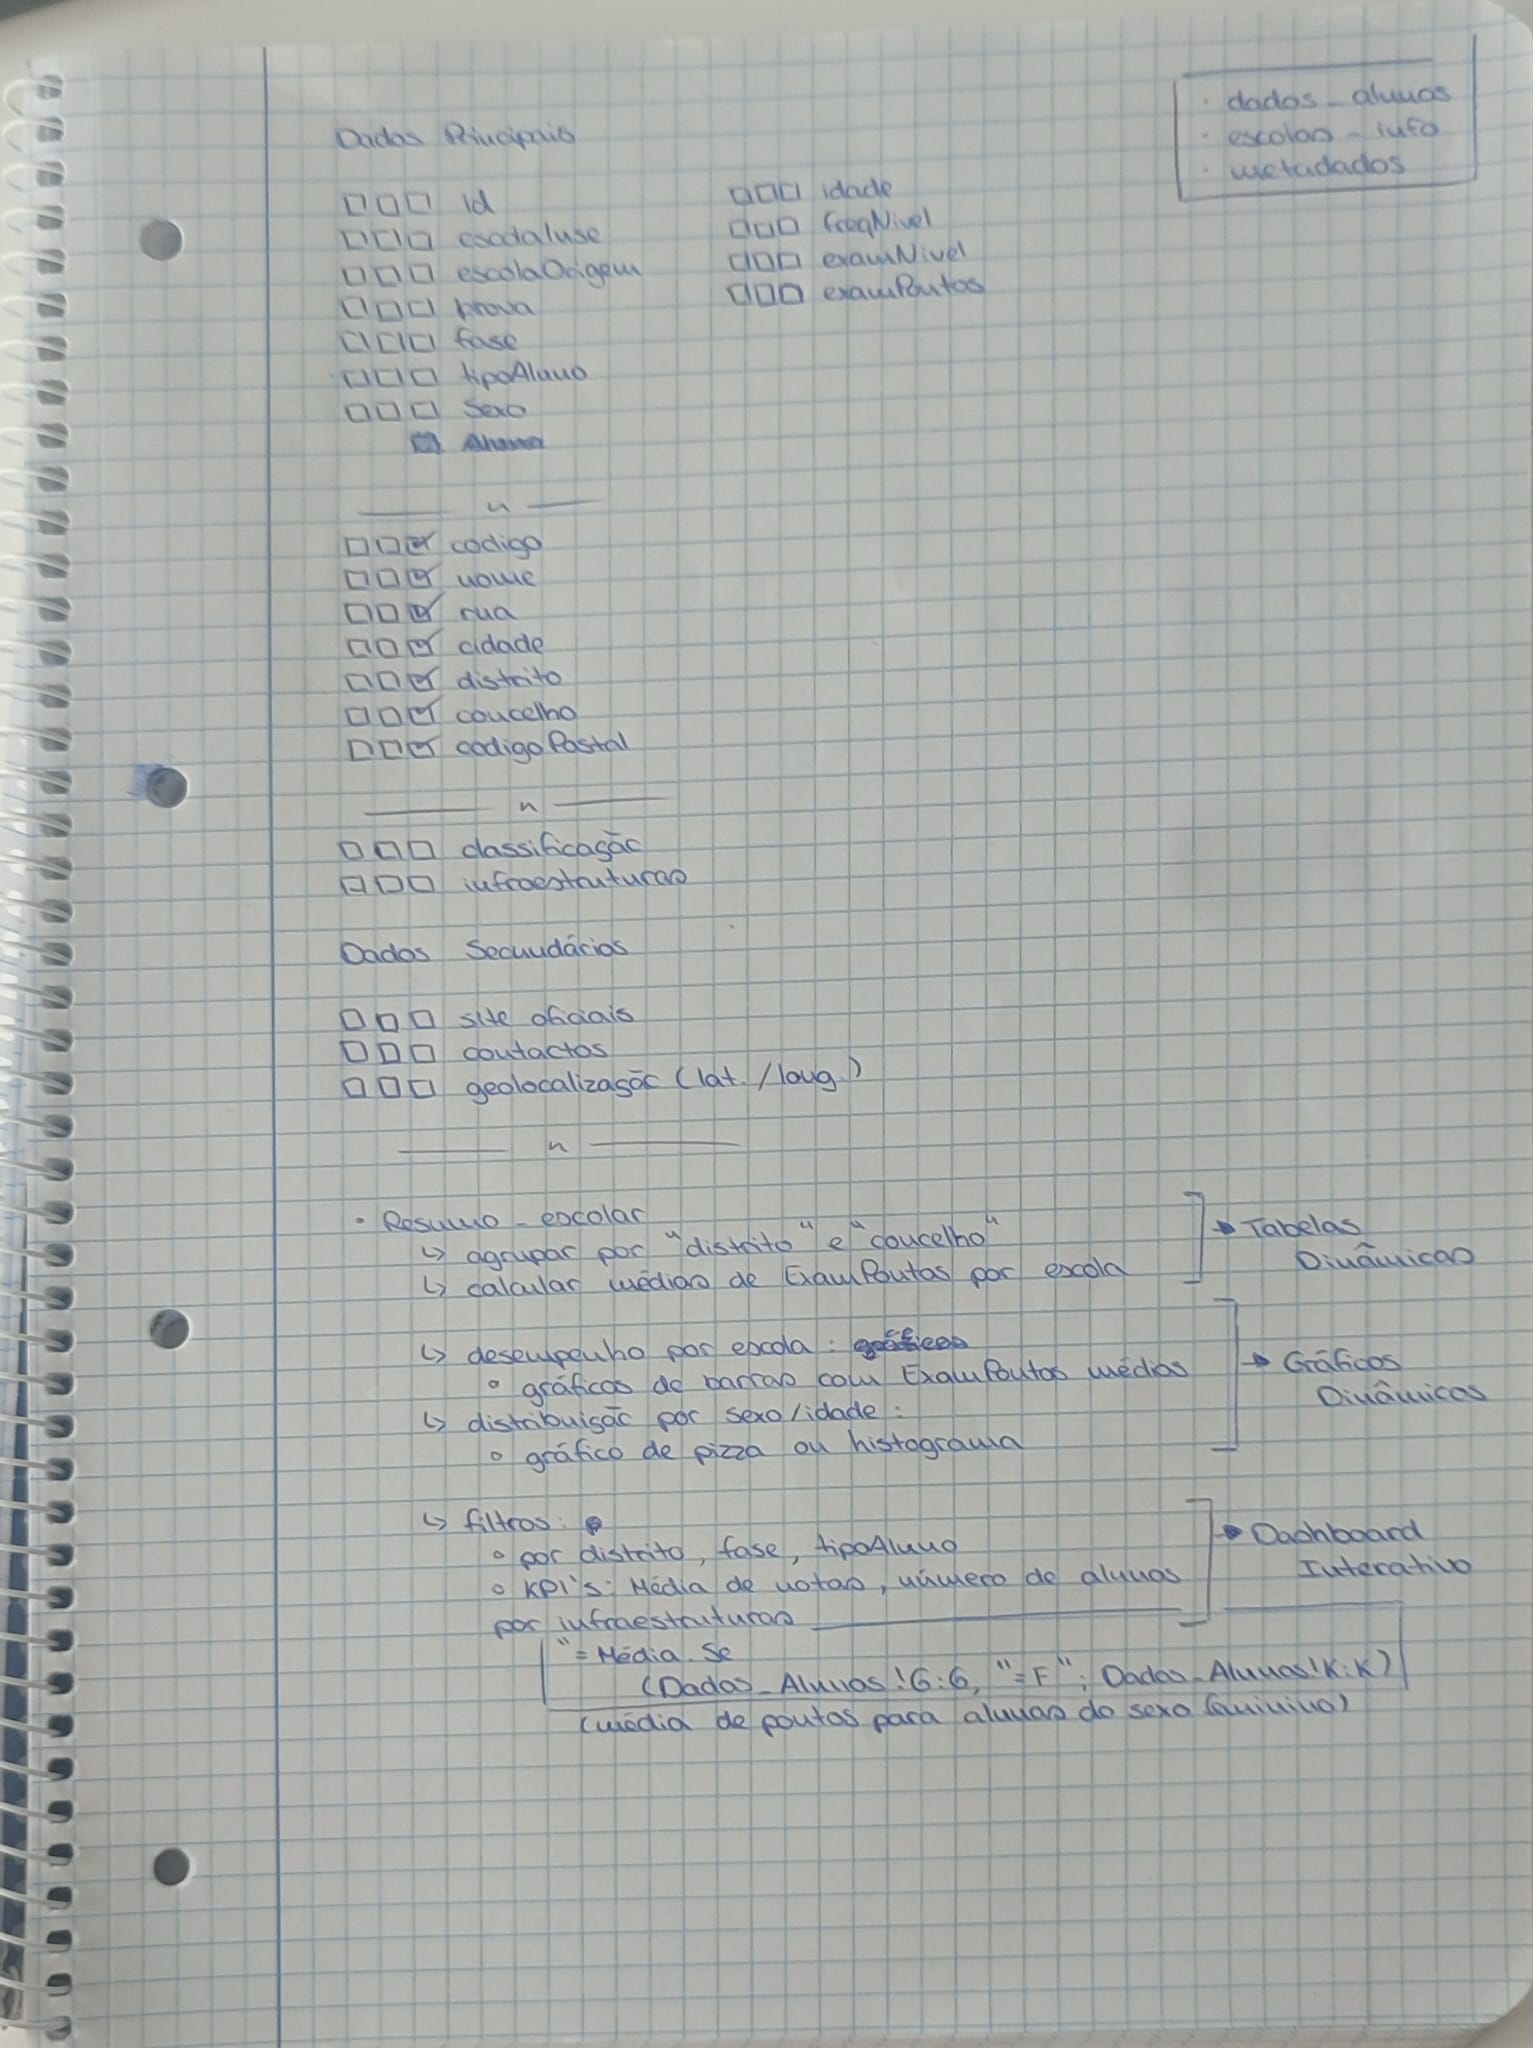 · dados_alunos
· escolas_info
· metadados
Dados Principais
□ □ □ id
□ □ □ escola
□ □ □ escolaOrigem
□ □ □ prova
□ □ □ fase
□ □ □ tipoAluno
□ □ □ Sexo
□ □ □ idade
□ □ □ freqNivel
□ □ □ examNivel
□ □ □ examPontos
□ □ ☑ codigo
□ □ ☑ nome
□ □ ☑ rua
□ □ ☑ cidade
□ □ ☑ distrito
□ □ ☑ concelho
□ □ ☑ codigoPostal
□ □ □ classificação
□ □ □ infraestruturas
Dados Secundários
□ □ □ site oficiais
□ □ □ contactos
□ □ □ geolocalização (lat. / long.)
· Resumo_escolar
↳ agrupar por "distrito" e "concelho"
↳ calcular médias de ExamPontos por escola
→ Tabelas
Dinâmicas
↳ desempenho por escola:
∘ gráficos de barras com ExamPontos médios
↳ distribuição por sexo/idade:
∘ gráfico de pizza ou histograma
→ Gráficos
Dinâmicos
↳ filtros:
∘ por distrito, fase, tipoAluno
∘ KPI's: Média de notas, número de alunos
por infraestruturas
→ Dashboard
Interativo
"=Média.Se
(Dados_Alunos!G:G, "=F"; Dados_Alunos!K:K)
(média de pontos para alunas do sexo feminino)